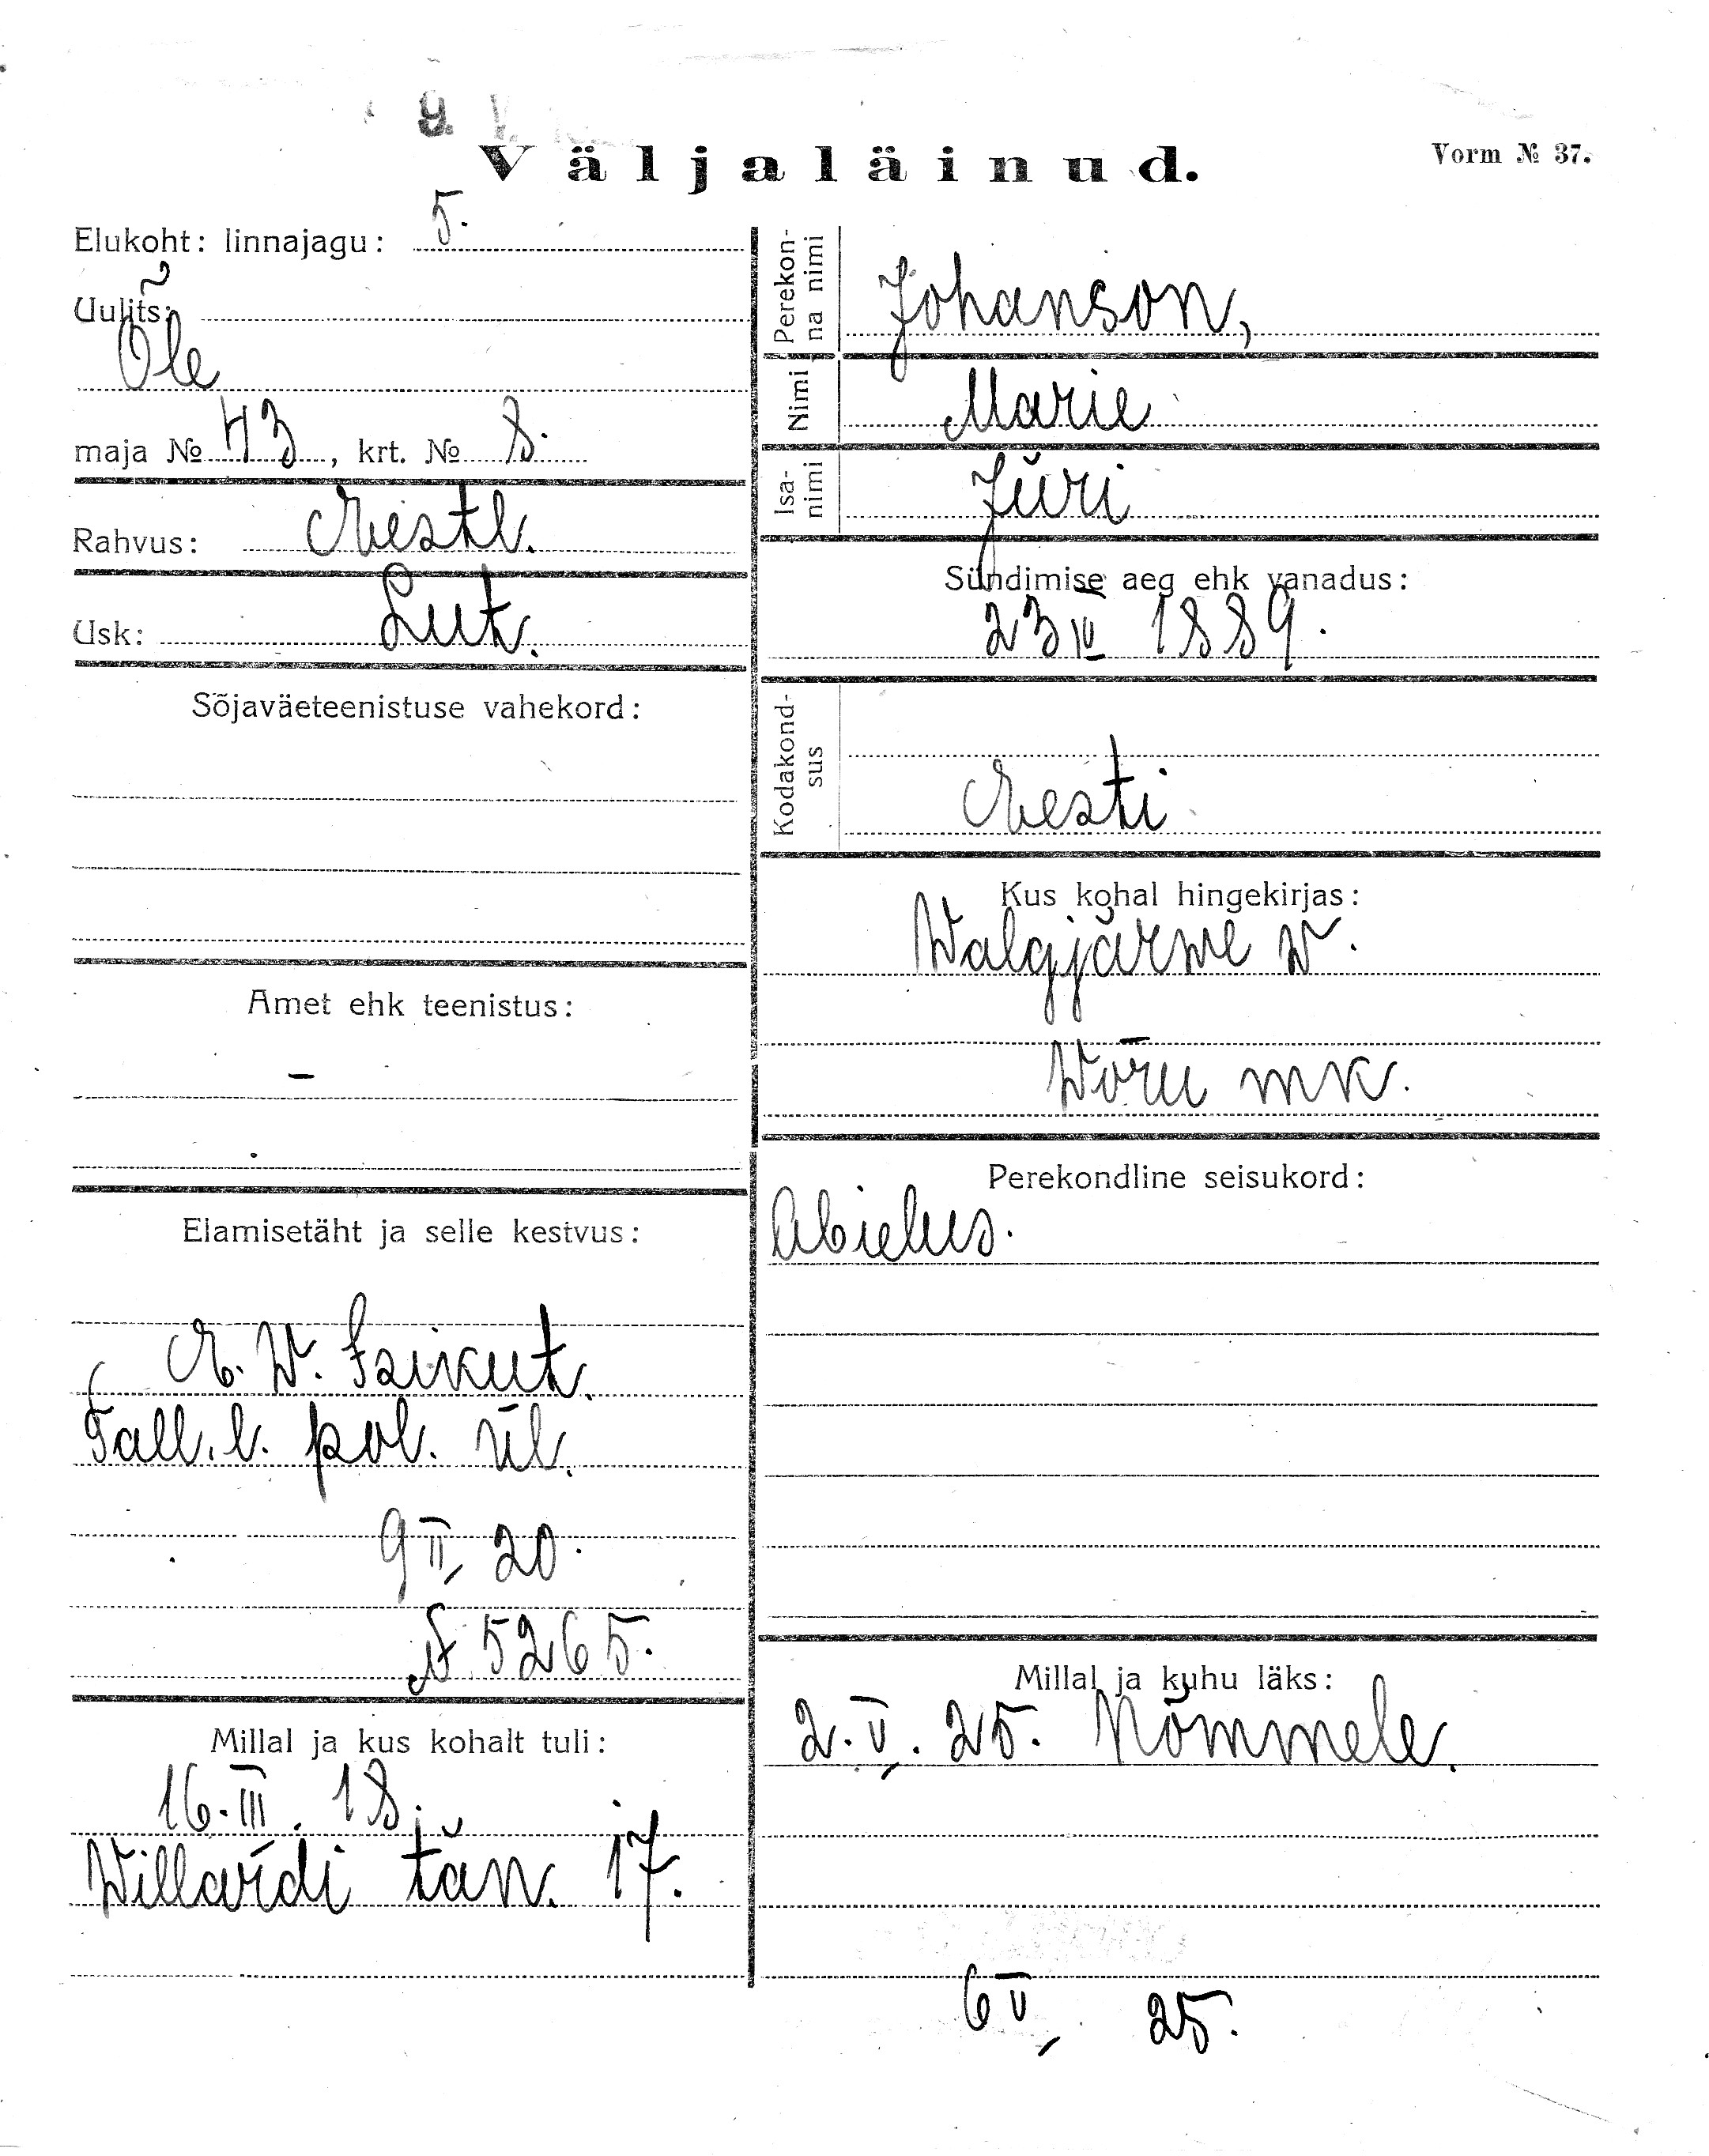 Väljaläinud.
Vorm № 37.
Elukoht: linnajagu: 5.
Uulits:
Õle
maja № 43, krt. № 8.
Rahvus: Eestl.
Usk: Lut.
Sõjaväeteenistuse vahekord:
Amet ehk teenistus:
–
Elamisetäht ja selle kestvus:
E. W. Isikut.
Tall. l. pol. ül.
9 II 20.
№ 5265.
Millal ja kus kohalt tuli:
16. III. 18.
Willardi tän. 17.
Perekonna nimi Johanson,
Nimi Marie
Isa-nimi Jüri
Sündimise aeg ehk vanadus:
23 IV 1889.
Kodakond-sus
Eesti
Kus kohal hingekirjas:
Walgjärwe w.
Wõru mk.
Perekondline seisukord:
Abielus.
Millal ja kuhu läks:
2. V. 25. Nõmmele.
6 V 25.